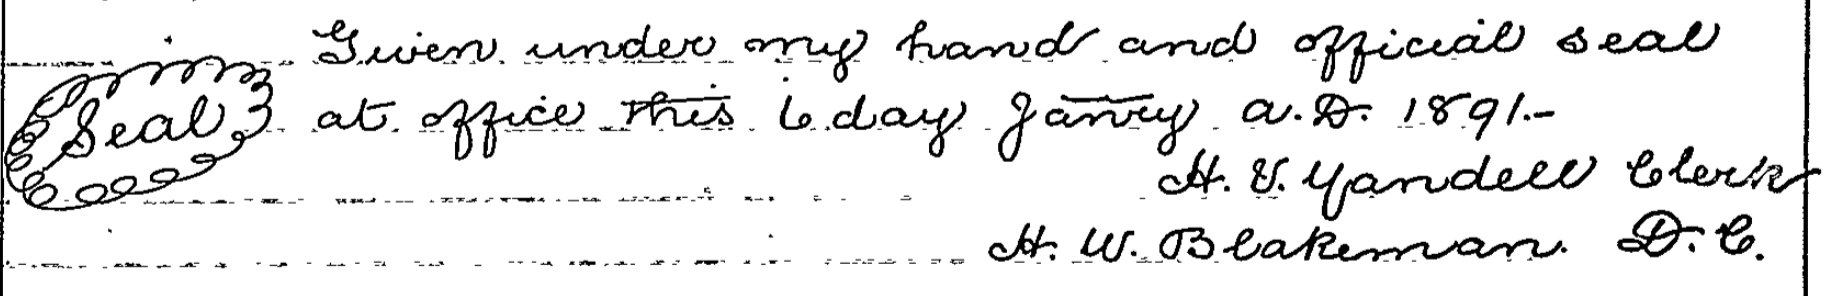 Given under my hand and official seal
Seal at office this 6 day Janry A.D. 1891.-
H. V. Yandell Clerk
H. W. Blakeman. D. C.